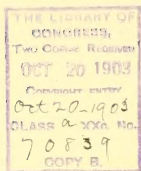 THE LIBRARY OF
CONGRESS,
TWO COPIES RECEIVED
OCT 20 1903
COPYRIGHT ENTRY
Oct 20-1903
CLASS a XXc. No.
70839
COPY B.